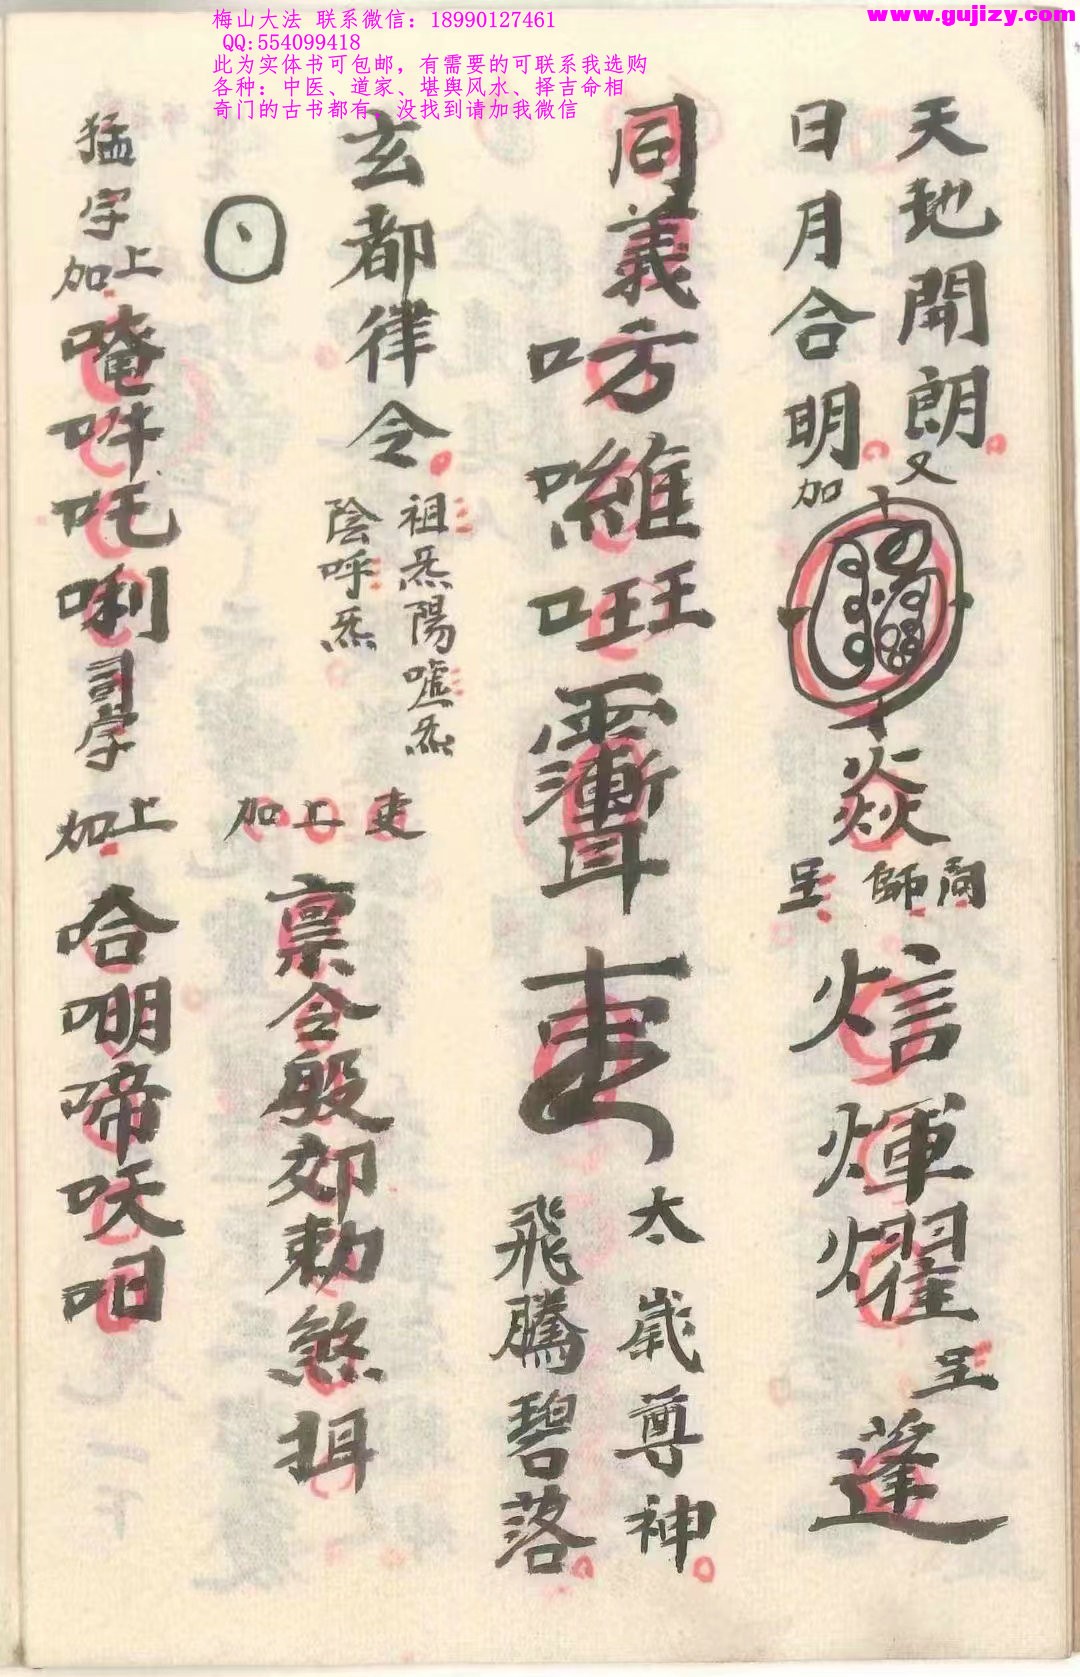 梅山大法 联系微信：18990127461
QQ:554099418
此为实体书可包邮，有需要的可联系我选购
各种：中医、道家、堪舆风水、择吉命相
奇门的古书都有，没找到请加我微信
www.gujizy.com
天地開朗
日月合明
又
加
焱
師
呈
煇燿
呈
蓬
義
太歲尊神
飛騰碧落
玄都律令
祖炁陽噓炁
陰呼炁
上加
禀令殷郊勅煞
猛字
上加
唵吽吒唎
上加
哈明啼